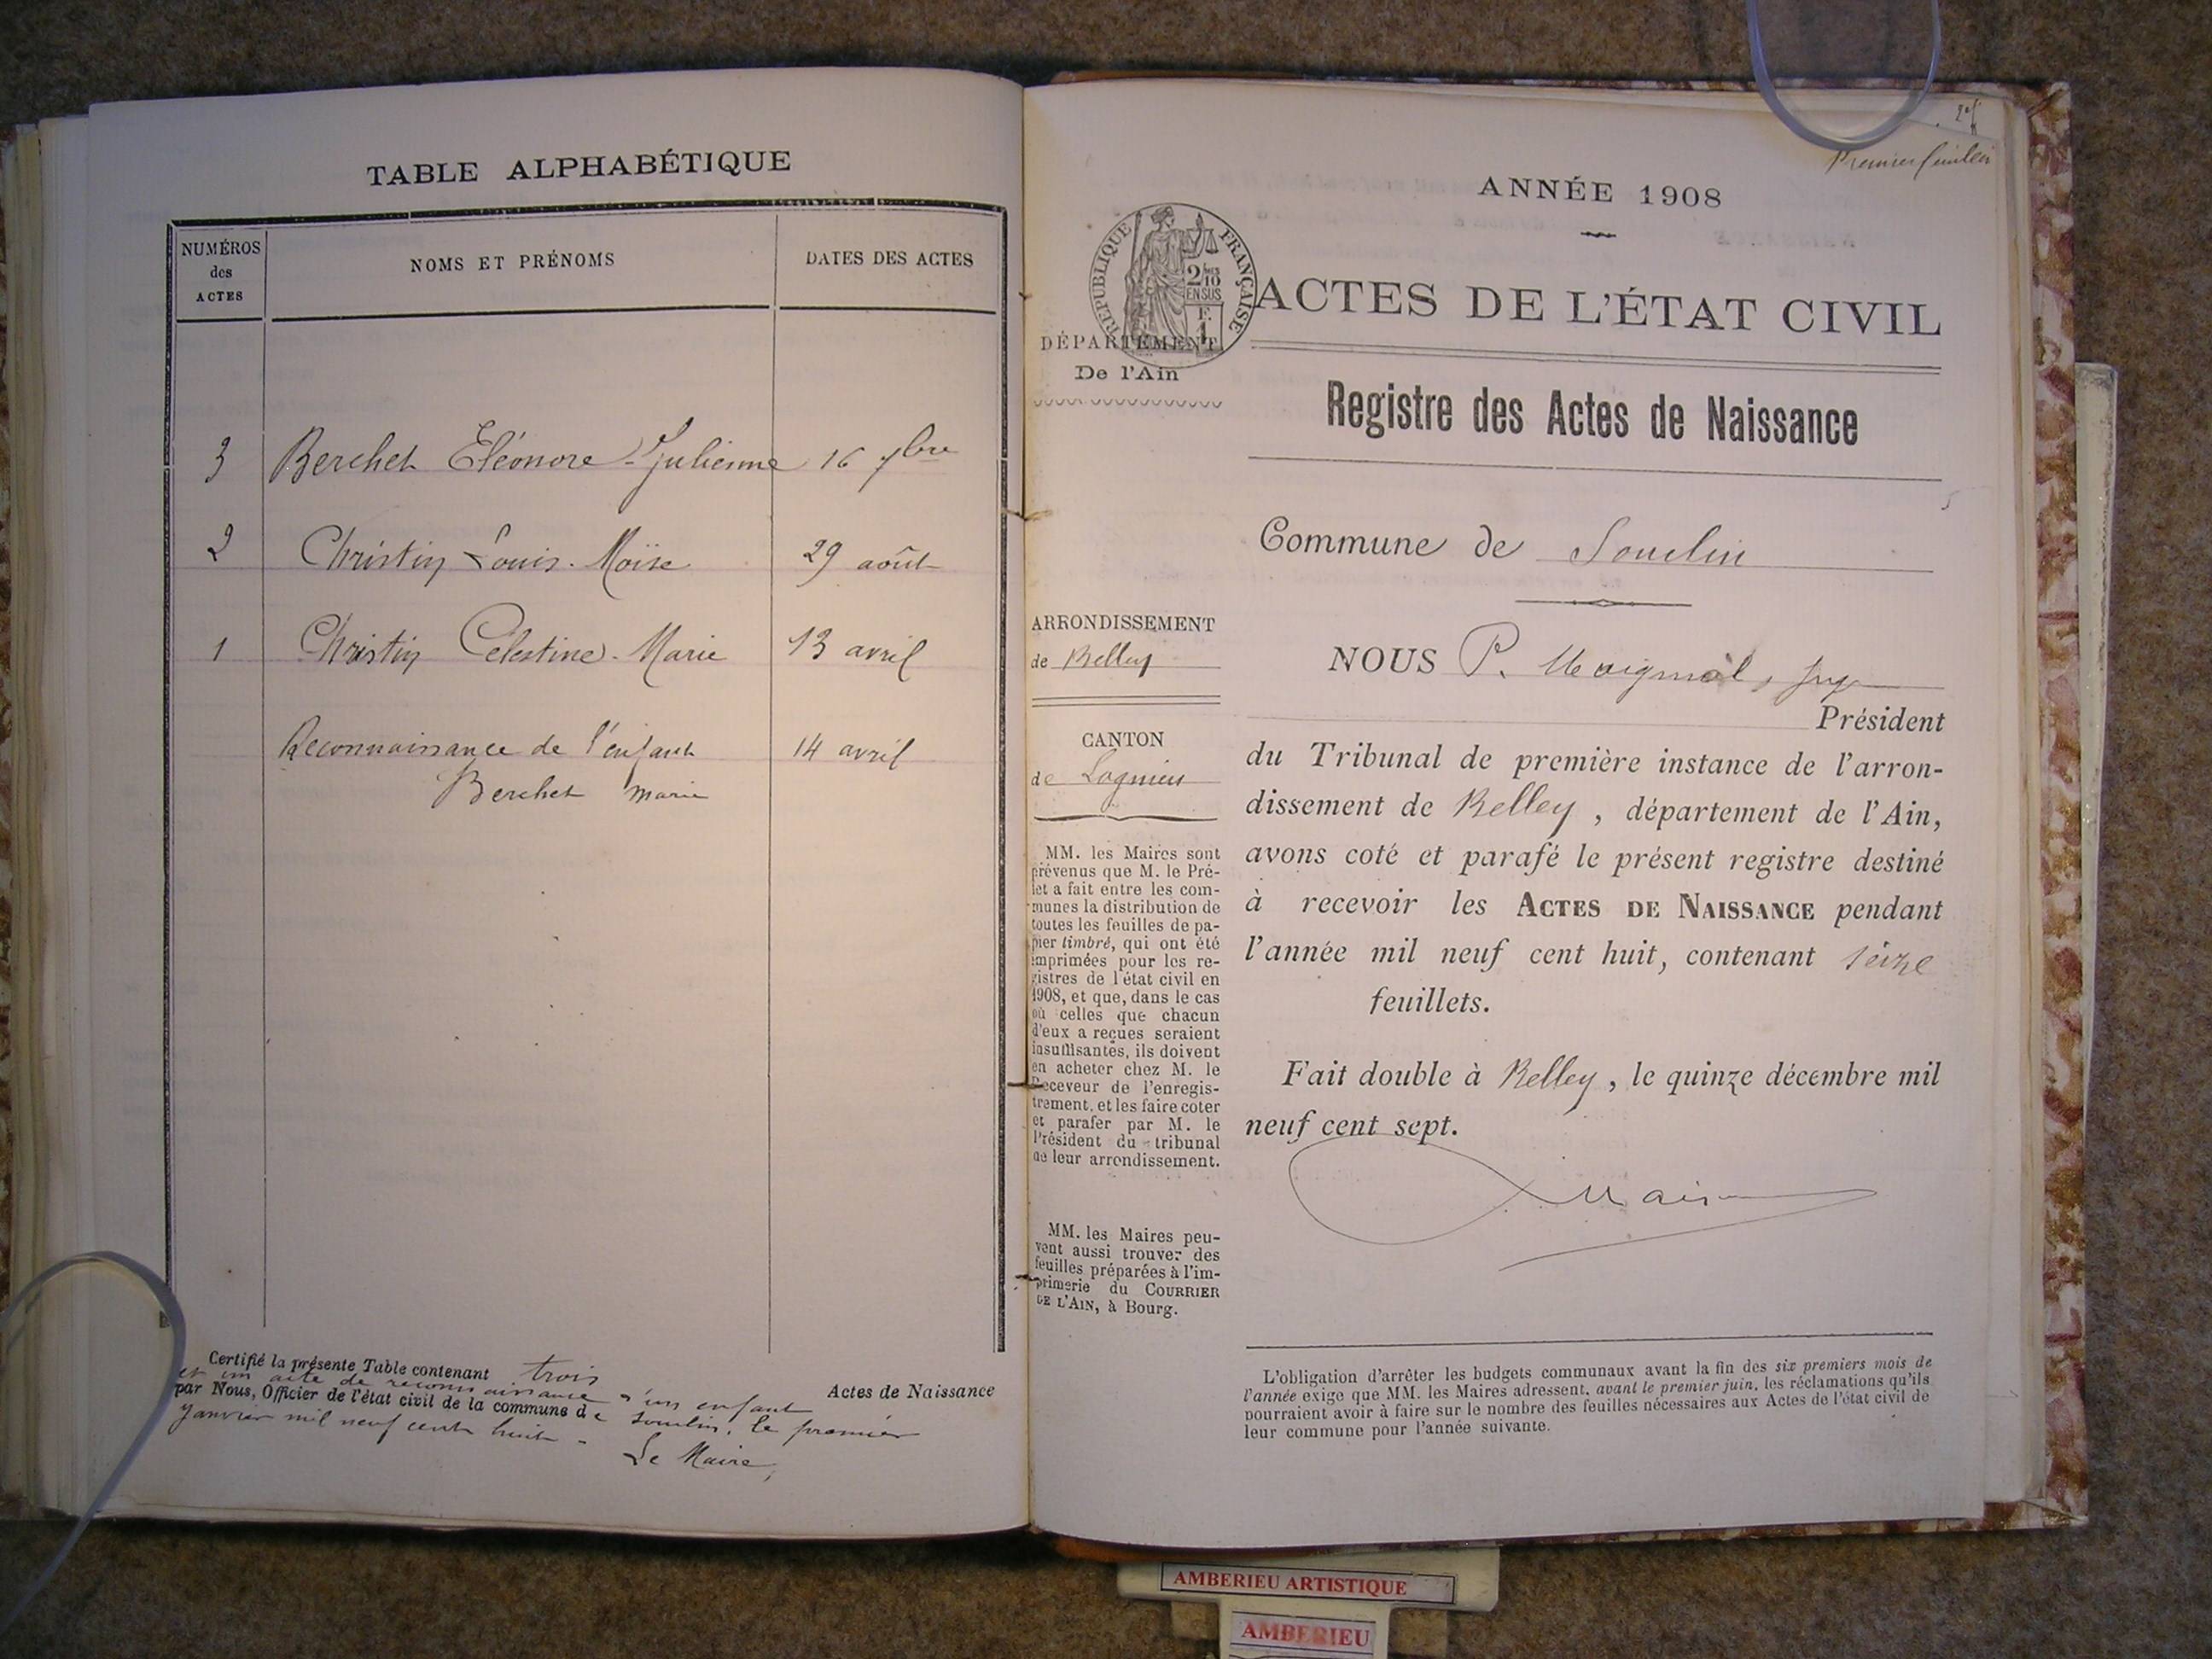 TABLE ALPHABÉTIQUE
NUMÉROS
des
ACTES
NOMS ET PRÉNOMS
DATES DES ACTES
3 Berchet Eléonore-Julienne 16 7bre
2 Christin Louis-Moïse 29 août
1 Christin Célestine-Marie 13 avril
Reconnaissance de l'enfant 14 avril
Berchet marie
Certifié la présente Table contenant trois
et un acte de reconnaissance d'un enfant Actes de Naissance
par Nous, Officier de l'état civil de la commune de Souclin, le premier
janvier mil neuf cent huit -
Le Maire,
Premier feuillet
ANNÉE 1908
RÉPUBLIQUE FRANÇAISE
2/10
EN SUS
ACTES DE L'ÉTAT CIVIL
DÉPARTEMENT
De l'Ain
Registre des Actes de Naissance
Commune de Souclin
ARRONDISSEMENT
de Belley
CANTON
de Lagnieu
MM. les Maires sont
prévenus que M. le Pré-
fet a fait entre les com-
munes la distribution de
toutes les feuilles de pa-
pier timbré, qui ont été
imprimées pour les re-
gistres de l'état civil en
1908, et que, dans le cas
où celles que chacun
d'eux a reçues seraient
insuffisantes, ils doivent
en acheter chez M. le
Receveur de l'enregis-
trement, et les faire coter
et parafer par M. le
Président du tribunal
de leur arrondissement.
MM. les Maires peu-
vent aussi trouver des
feuilles préparées à l'im-
primerie du COURRIER
DE L'AIN, à Bourg.
NOUS P.
Président
du Tribunal de première instance de l'arron-
dissement de Belley, département de l'Ain,
avons coté et parafé le présent registre destiné
à recevoir les ACTES DE NAISSANCE pendant
l'année mil neuf cent huit, contenant seize
feuillets.
Fait double à Belley, le quinze décembre mil
neuf cent sept.
L'obligation d'arrêter les budgets communaux avant la fin des six premiers mois de
l'année exige que MM. les Maires adressent, avant le premier juin, les réclamations qu'ils
pourraient avoir à faire sur le nombre des feuilles nécessaires aux Actes de l'état civil de
leur commune pour l'année suivante.
AMBERIEU ARTISTIQUE
AMBERIEU